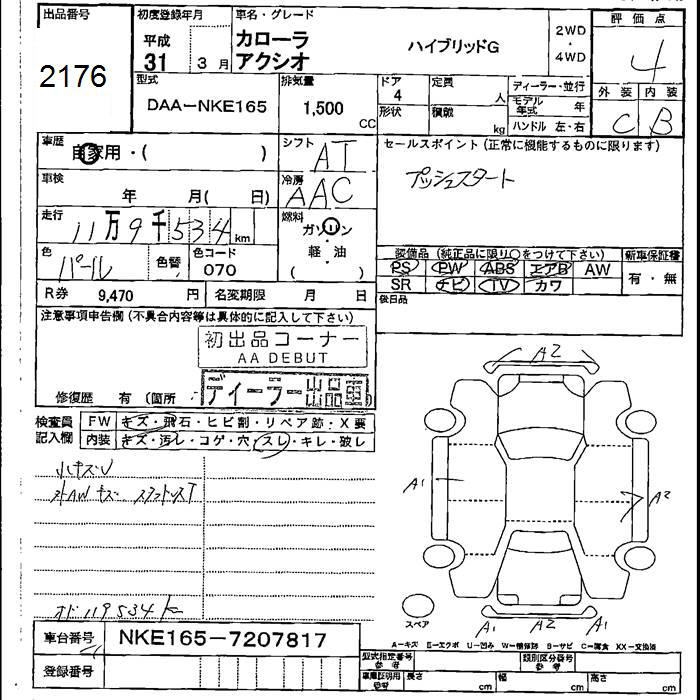 出品番号
2176
初度登録年月
平成
31
3月
車名・グレード
カローラ
アクシオ
ハイブリッドG
2WD
・
4WD
評価点
4
外装 内装
C B
型式
DAA-NKE165
排気量
1,500
CC
ドア
4
形状
定員
人
積載
kg
ディーラー・並行
モデル
年式
年
ハンドル 左・右
車歴
自家用・( )
シフト
AT
車検
年 月( 日)
冷房
AAC
走行
11万9千534km
燃料
ガソリン
軽・油
( )
色
パール
色替
色コード
070
R券
9,470
円
名変期限 月 日
セールスポイント(正常に機能するものに限ります)
プッシュスタート
装備品(純正品に限り○をつけて下さい)
新車保証種
PS PW ABS エアB AW
SR ナビ TV カワ
有・無
後日品
注意事項申告欄(不具合内容等は具体的に記入して下さい)
初出品コーナー
AA DEBUT
ディーラー出品車
修復歴 有(箇所 )
検査員
記入欄
FW
キズ・飛石・ヒビ割・リペア跡・X要
内装
キズ・汚レ・コゲ・穴・スレ・キレ・破レ
小キズU
オド119534k
車台番号
NKE165-7207817
登録番号
A2
A1
A2
A1
A2
A1
スペア
A-キズ E-エクボ U-凹み W-補修跡 B-サビ C-腐食 XX-交換済
型式指定番号
参考
類別区分番号
参考
車庫証明用
参考
長さ
cm
幅
cm
高さ
cm